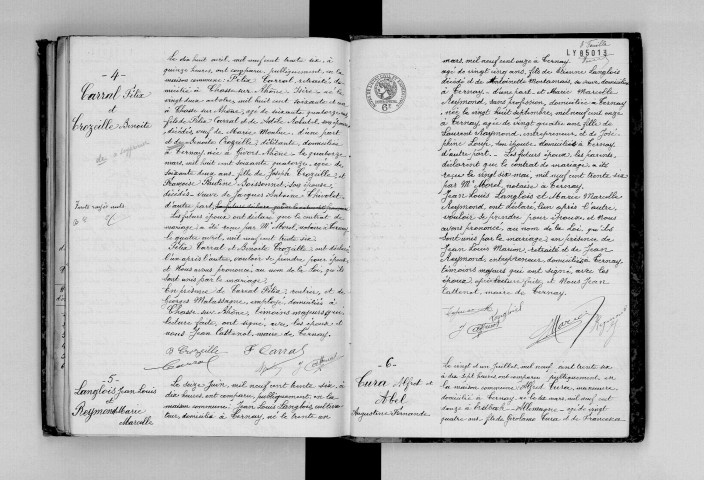 - 4 -
Carral Félix
et
Crozeille Benoîte
Le dix huit avril, mil neuf cent trente six, à
quinze heures, ont comparu, publiquement, en la
maison commune : Félix Carral, retraité, do-
micilié à Chasse-sur-Rhône, Isère, né le
vingt deux octobre, mil huit cent soixante et un
à Chasse sur Rhône, âgé de soixante quatorze ans,
fils de Félix Carral et de Adèle son épouse
décédés, veuf de Marie Moulin, d'une part
et Benoîte Crozeille, débitante, domiciliée
à Ternay, née à Givors, Rhône, le quatorze
mars, mil huit cent soixante quatorze, âgée de
soixante deux ans, fille de Joseph Crozeille et
Françoise Pauline son épouse,
décédés, veuve de Jacques Antoine Chevolet
d'autre part,
Les futurs époux ont déclaré que le contrat de
mariage a été reçu par Me Morel, notaire à Ternay
le quatre avril, mil neuf cent trente six.
Félix Carral et Benoîte Crozeille ont déclaré
l'un après l'autre, vouloir se prendre pour époux,
et Nous avons prononcé, au nom de la loi, qu'ils
sont unis par le mariage.
En présence de Carral Félix, rentier, et de
Georges Malassagne, employé, domiciliés à
Chasse sur Rhône, témoins majeurs qui,
lecture faite, ont signé, avec les époux et
nous Jean Cattenot, maire de Ternay.
B Crozeille F Carral
Carral J Cattenot
Trente rayés nuls
- 5 -
Langlois Jean Louis
et
Reymond Marie
Marcelle
Le seize juin, mil neuf cent trente six, à
dix heures, ont comparu, publiquement, en la
maison commune : Jean Louis Langlois, cultiva-
teur, domicilié à Ternay, né le trente un
LY85013
mars, mil neuf cent onze à Ternay
âgé de vingt cinq ans, fils de Etienne Langlois
décédé et de Antoinette sa veuve, domiciliée
à Ternay, d'une part, et Marie Marcelle
Reymond, sans profession, domiciliée à Ternay
née le vingt huit septembre, mil neuf cent onze
à Ternay, âgée de vingt quatre ans, fille de
Laurent Reymond, entrepreneur, et de José-
phine Loup, son épouse, domiciliés à Ternay,
d'autre part. — Les futurs époux, les parents,
déclarent que le contrat de mariage a été
reçu le vingt six mai, mil neuf cent trente six
par Me Morel, notaire à Ternay.
Jean Louis Langlois et Marie Marcelle
Reymond, ont déclaré, l'un après l'autre
vouloir se prendre pour époux, et Nous
avons prononcé, au nom de la loi, qu'ils
sont unis par le mariage, en présence de
Jean Louis Marion, retraité et de Jean
Reymond, entrepreneur, domiciliés à Ternay,
témoins majeurs qui ont signé, avec les
époux, après lecture faite, et Nous Jean
Cattenot, maire de Ternay.
Langlois
J Cattenot Marion Reymond
- 6 -
Cura Alfred et
Abel
Augustine Fernande
Le vingt d'un Juillet, mil neuf cent trente six
à dix sept heures, ont comparu publiquement, en
la maison commune, Alfred Cura, manœuvre,
domicilié à Ternay, né le dix mars, mil neuf cent
douze à Allemagne — âgé de vingt
quatre ans, fils de Girolamo Cura et de Francesca